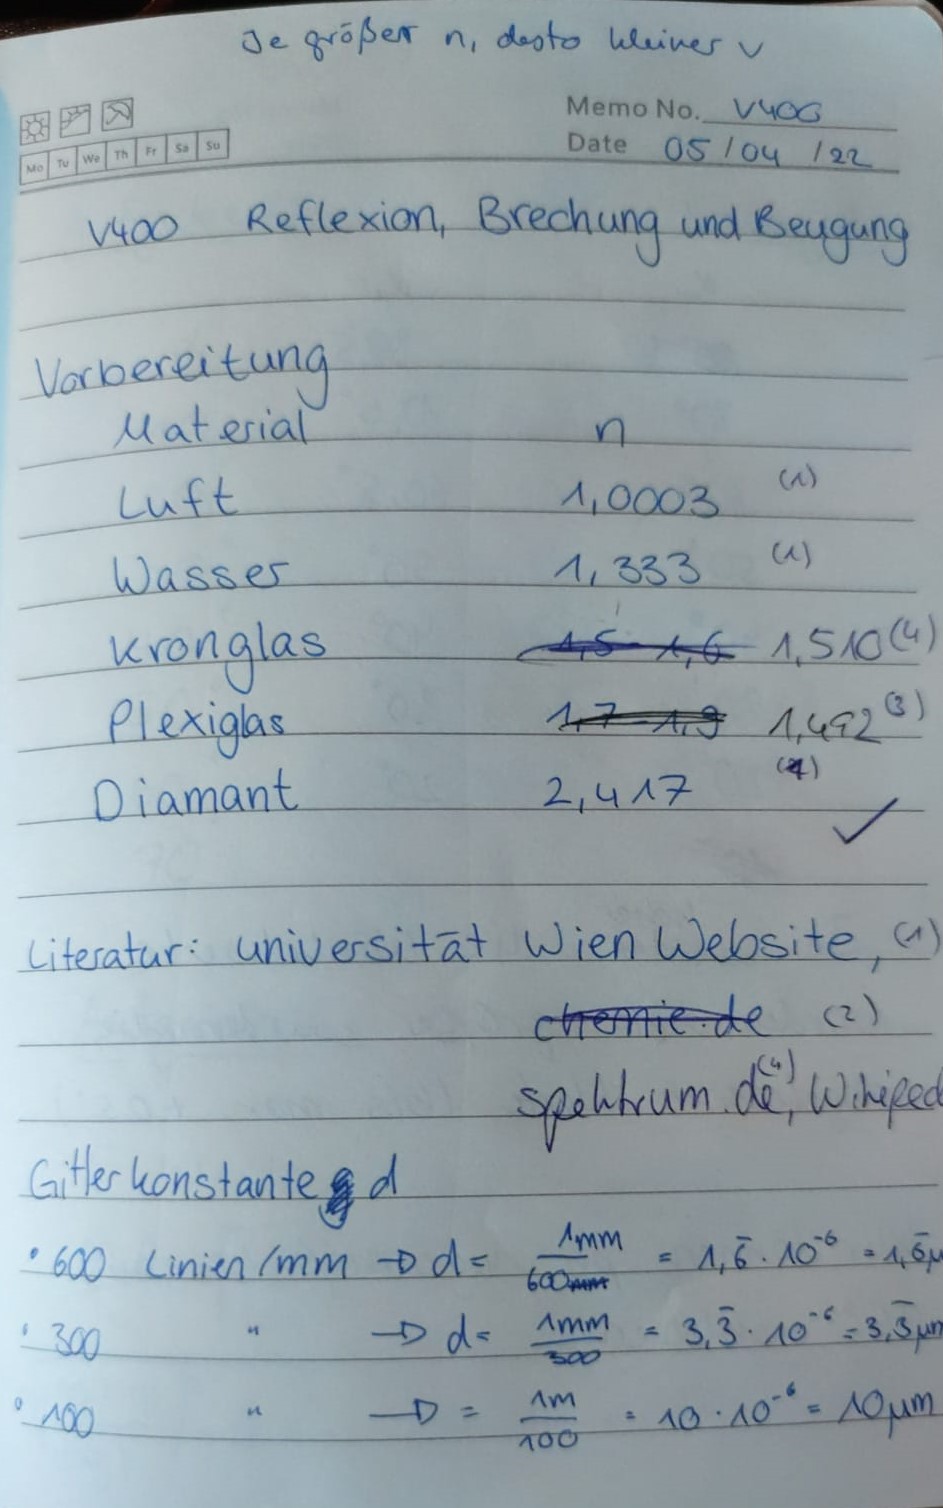 Je größer n, desto kleiner v
Memo No. V400
Mo Tu We Th Fr Sa Su
Date 05/04/22
V400 Reflexion, Brechung und Beugung
Vorbereitung
Material n
Luft 1,0003 (1)
Wasser 1,333 (1)
Kronglas 1,5-1,6 1,510 (4)
Plexiglas 1,7-1,9 1,492 (3)
Diamant 2,417 (4)
Literatur: Universität Wien Website, (1)
chemie.de (2)
spektrum.de (4), Wikiped
Gitterkonstante d
• 600 Linien/mm → d = 1mm/600mm = 1,6̄ · 10⁻⁶ = 1,6̄ μ
• 300 " → d = 1mm/300 = 3,3̄ · 10⁻⁶ = 3,3̄ μm
• 100 " → = 1m/100 = 10 · 10⁻⁶ = 10 μm